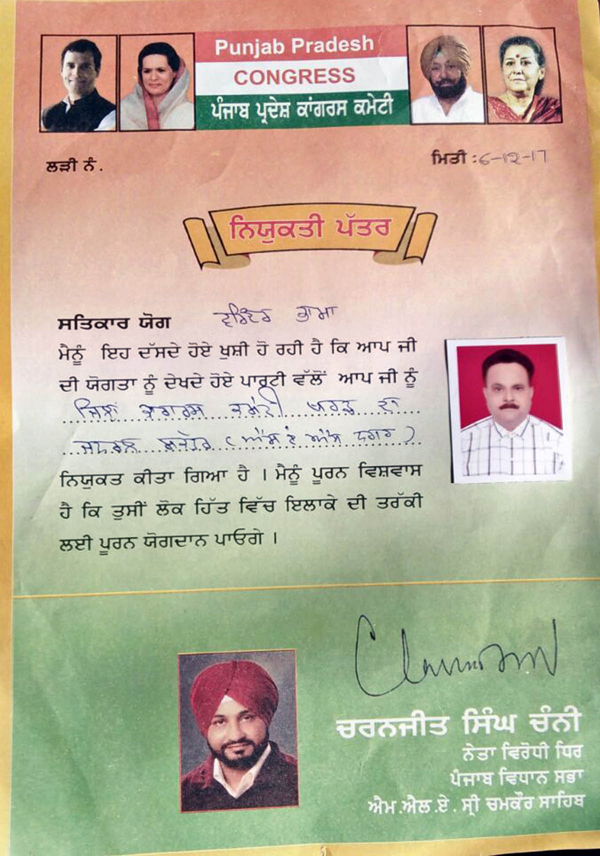 Punjab Pradesh
CONGRESS
ਪੰਜਾਬ ਪ੍ਰਦੇਸ਼ ਕਾਂਗਰਸ ਕਮੇਟੀ
ਲੜੀ ਨੰ.
ਮਿਤੀ : 6-12-17
ਨਿਯੁਕਤੀ ਪੱਤਰ
ਸਤਿਕਾਰ ਯੋਗ
ਮੈਨੂੰ ਇਹ ਦੱਸਦੇ ਹੋਏ ਖੁਸ਼ੀ ਹੋ ਰਹੀ ਹੈ ਕਿ ਆਪ ਜੀ
ਦੀ ਯੋਗਤਾ ਨੂੰ ਦੇਖਦੇ ਹੋਏ ਪਾਰਟੀ ਵੱਲੋਂ ਆਪ ਜੀ ਨੂੰ
ਨਿਯੁਕਤ ਕੀਤਾ ਗਿਆ ਹੈ । ਮੈਨੂੰ ਪੂਰਨ ਵਿਸ਼ਵਾਸ
ਹੈ ਕਿ ਤੁਸੀਂ ਲੋਕ ਹਿੱਤ ਵਿੱਚ ਇਲਾਕੇ ਦੀ ਤਰੱਕੀ
ਲਈ ਪੂਰਨ ਯੋਗਦਾਨ ਪਾਓਗੇ ।
ਚਰਨਜੀਤ ਸਿੰਘ ਚੰਨੀ
ਨੇਤਾ ਵਿਰੋਧੀ ਧਿਰ
ਪੰਜਾਬ ਵਿਧਾਨ ਸਭਾ
ਐਮ.ਐਲ.ਏ. ਸ੍ਰੀ ਚਮਕੌਰ ਸਾਹਿਬ